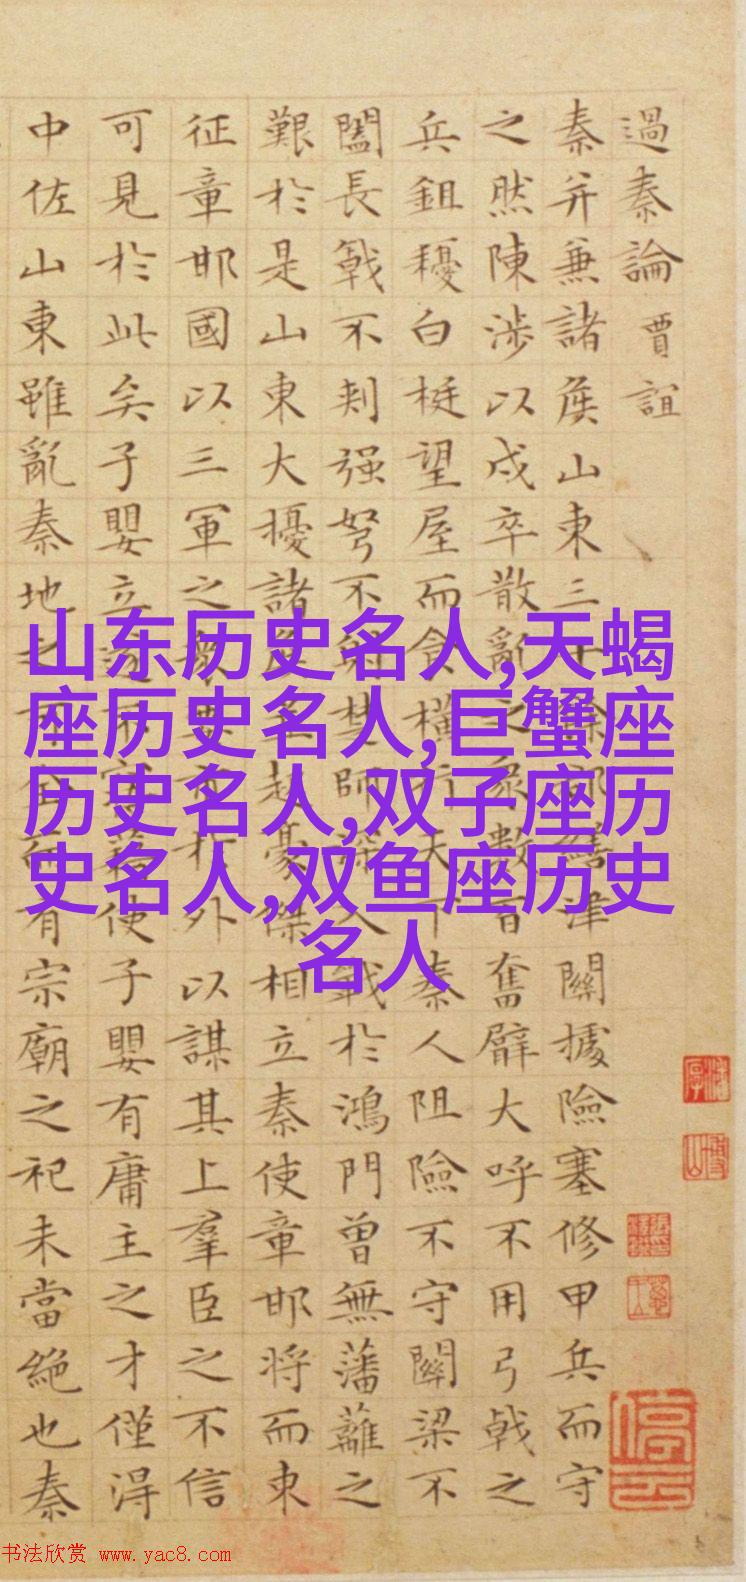 過秦論 賈誼
秦并兼諸侯山東三十餘郡繕津關據險塞修甲兵而守
之然陳涉以戍卒散亂之衆數百奮臂大呼不用弓戟之
兵鉏耰白梃望屋而食橫行天下秦人阻險不守關梁不
闔長戟不刺强弩不射楚師深入戰於鴻門曾無藩籬之
艱於是山東大擾諸侯並起豪傑相立秦使章邯將而東
征章邯國以三軍之衆要市於外以謀其上羣臣之不信
可見於此矣子嬰立遂不寤藉使子嬰有庸主之才僅得
中佐山東雖亂秦地之可全而有宗廟之祀未當絕也秦
山东历史名人,天蝎
座历史名人,巨蟹座
历史名人,双子座历
史名人,双鱼座历史
名人
停云
书法欣赏 www.yac8.com